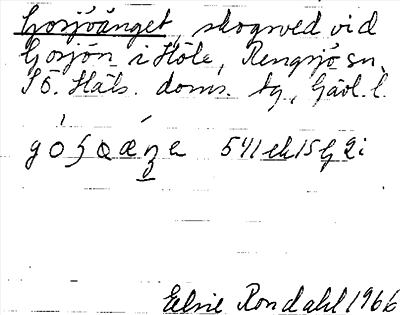 Gosjöänget, skogsved vid
Gosjön i Höle, Rengsjö sn.
Sö. Häls. doms. tg., Gävl. l.
541 ek 15 G 2i
Elsie Rondahl 1966